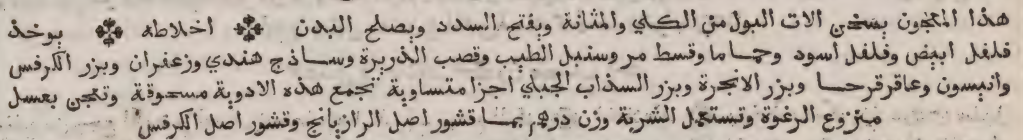 هذا المعجون يسخن الات البول من الكلي والمثانة ويفتح السدد ويصلح البدن ❊ اخلاطه ❊ يوخذ
فلفل ابيض وفلفل اسود وحماما وقسط مر وسنبل الطيب وقصب الذريرة وساذج هندي وزعفران وبزر الكرفس
وانيسون وعاقرقرحا وبزر الانجرة وبزر السذاب الجبلي اجزا متساوية تجمع هذه الادوية مسحوقة وتعجن بعسل
منزوع الرغوة وتستعمل الشربة وزن درهم بما قشور اصل الرازيانج وقشور اصل الكرفس